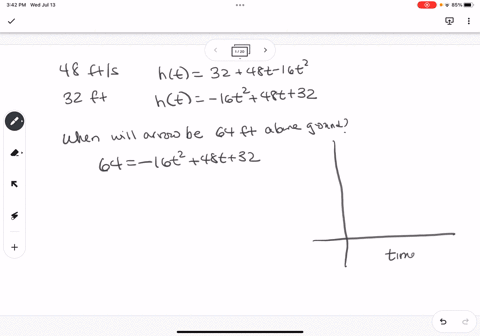 3:42 PM Wed Jul 13
85%
48 ft/s h(t) = 32 + 48t - 16t²
32 ft h(t) = -16t² + 48t + 32
When will arrow be 64 ft above ground?
64 = -16t² + 48t + 32
time